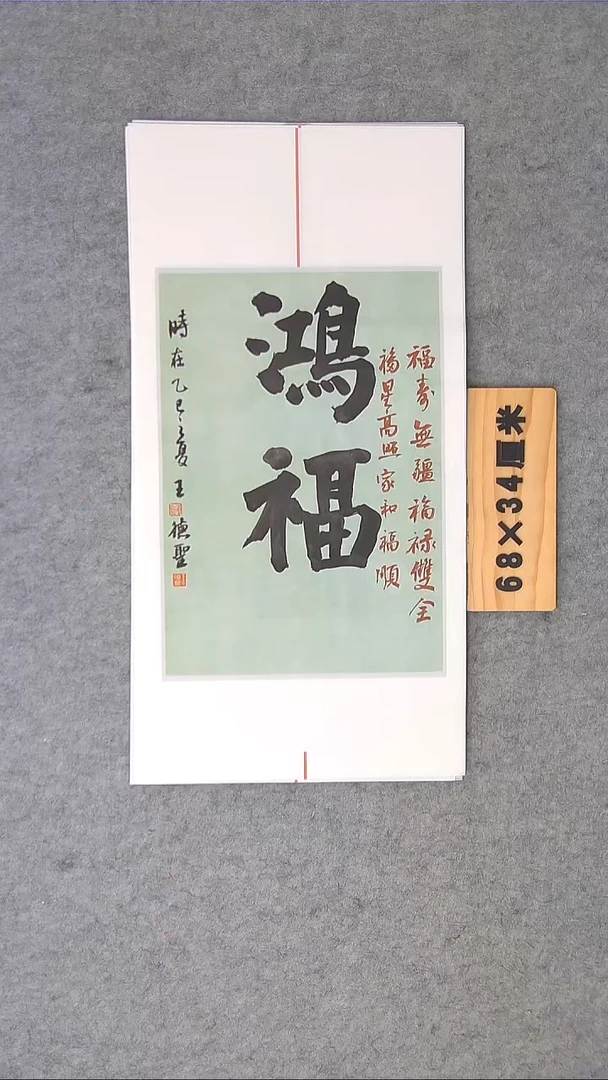 福壽無疆福禄雙全
福星高照家和福順
鴻福
時在乙巳夏王德聖
68×34厘米